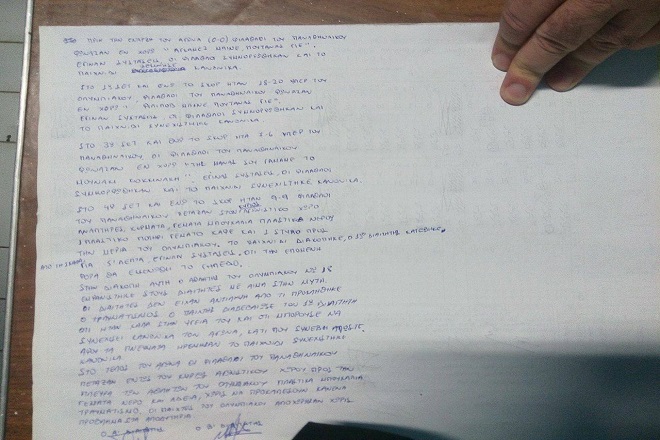 ΠΡΙΝ ΤΗΝ ΕΝΑΡΞΗ ΤΟΥ ΑΓΩΝΑ (0-0) ΦΙΛΑΘΛΟΙ ΤΟΥ ΠΑΝΑΘΗΝΑΙΚΟΥ
ΦΩΝΑΞΑΝ ΕΝ ΧΟΡΩ
ΕΓΙΝΑΝ ΣΥΣΤΑΣΕΙΣ, ΟΙ ΦΙΛΑΘΛΟΙ ΣΥΜΜΟΡΦΩΘΗΚΑΝ ΚΑΙ ΤΟ
ΠΑΙΧΝΙΔΙ ΚΑΝΟΝΙΚΑ.
ΣΤΟ ΣΕΤ ΚΑΙ ΕΝΩ ΤΟ ΣΚΟΡ ΗΤΑΝ 18-20 ΥΠΕΡ ΤΟΥ
ΟΛΥΜΠΙΑΚΟΥ, ΦΙΛΑΘΛΟΙ ΤΟΥ ΠΑΝΑΘΗΝΑΙΚΟΥ ΦΩΝΑΞΑΝ
ΕΝ ΧΟΡΩ
ΕΓΙΝΑΝ ΣΥΣΤΑΣΕΙΣ, ΟΙ ΦΙΛΑΘΛΟΙ ΣΥΜΜΟΡΦΩΘΗΚΑΝ ΚΑΙ
ΤΟ ΠΑΙΧΝΙΔΙ ΣΥΝΕΧΙΣΤΗΚΕ ΚΑΝΟΝΙΚΑ.
ΣΤΟ 3ο ΣΕΤ ΚΑΙ ΕΝΩ ΤΟ ΣΚΟΡ ΗΤΑΝ ΥΠΕΡ ΤΟΥ
ΠΑΝΑΘΗΝΑΙΚΟΥ, ΟΙ ΦΙΛΑΘΛΟΙ ΤΟΥ ΠΑΝΑΘΗΝΑΙΚΟΥ
ΦΩΝΑΞΑΝ ΕΝ ΧΟΡΩ "ΤΗΣ ΜΑΝΑΣ ΣΟΥ ΤΟ
ΜΟΥΝΑΚΙ ΚΟΚΚΙΝΑΚΙ". ΕΓΙΝΑΝ ΣΥΣΤΑΣΕΙΣ, ΟΙ ΦΙΛΑΘΛΟΙ
ΣΥΜΜΟΡΦΩΘΗΚΑΝ ΚΑΙ ΤΟ ΠΑΙΧΝΙΔΙ ΣΥΝΕΧΙΣΤΗΚΕ ΚΑΝΟΝΙΚΑ.
ΣΤΟ 4ο ΣΕΤ ΚΑΙ ΕΝΩ ΤΟ ΣΚΟΡ ΗΤΑΝ 9-9 ΦΙΛΑΘΛΟΙ
ΤΟΥ ΠΑΝΑΘΗΝΑΙΚΟΥ ΠΕΤΑΞΑΝ ΣΤΟΝ ΑΓΩΝΙΣΤΙΚΟ ΧΩΡΟ
ΑΝΑΠΤΗΡΕΣ, ΚΕΡΜΑΤΑ, ΓΕΜΑΤΑ ΜΠΟΥΚΑΛΙΑ ΠΛΑΣΤΙΚΑ ΝΕΡΟΥ
1 ΠΛΑΣΤΙΚΟ ΠΟΤΗΡΙ ΓΕΜΑΤΟ ΚΑΦΕ ΚΑΙ 1 ΣΤΥΛΟ ΠΡΟΣ
ΤΗΝ ΜΕΡΙΑ ΤΟΥ ΟΛΥΜΠΙΑΚΟΥ. ΤΟ ΠΑΙΧΝΙΔΙ ΔΙΑΚΟΠΗΚΕ, Ο 1ος ΔΙΑΙΤΗΤΗΣ ΚΑΤΕΒΗΚΕ,
ΓΙΑ 5' ΛΕΠΤΑ, ΕΓΙΝΑΝ ΣΥΣΤΑΣΕΙΣ, ΟΤΙ ΤΗΝ ΕΠΟΜΕΝΗ
ΦΟΡΑ ΘΑ ΕΚΚΕΝΩΘΕΙ ΤΟ ΓΗΠΕΔΟ.
ΣΤΗΝ ΔΙΑΚΟΠΗ ΑΥΤΗ Ο ΑΘΛΗΤΗΣ ΤΟΥ ΟΛΥΜΠΙΑΚΟΥ Νο
ΕΜΦΑΝΙΣΤΗΚΕ ΣΤΟΥΣ ΔΙΑΙΤΗΤΕΣ ΜΕ ΑΙΜΑ ΣΤΗΝ ΜΥΤΗ.
ΟΙ ΔΙΑΙΤΗΤΕΣ ΔΕΝ ΕΙΧΑΝ ΑΝΤΙΛΗΨΗ ΑΠΟ ΤΙ ΠΡΟΚΛΗΘΗΚΕ
Ο ΤΡΑΥΜΑΤΙΣΜΟΣ. Ο ΠΑΙΚΤΗΣ ΔΙΑΒΕΒΑΙΩΣΕ ΤΟΝ 1ο ΔΙΑΙΤΗΤΗ
ΟΤΙ ΗΤΑΝ ΚΑΛΑ ΣΤΗΝ ΥΓΕΙΑ ΤΟΥ ΚΑΙ ΟΤΙ ΜΠΟΡΟΥΣΕ ΝΑ
ΣΥΝΕΧΙΣΕΙ ΚΑΝΟΝΙΚΑ ΤΟΝ ΑΓΩΝΑ, ΚΑΤΙ ΠΟΥ ΣΥΝΕΒΗ
ΑΦΟΥ ΤΑ ΠΝΕΥΜΑΤΑ ΗΡΕΜΗΣΑΝ ΤΟ ΠΑΙΧΝΙΔΙ ΣΥΝΕΧΙΣΤΗΚΕ
ΚΑΝΟΝΙΚΑ.
ΣΤΟ ΤΕΛΟΣ ΤΟΥ ΑΓΩΝΑ ΟΙ ΦΙΛΑΘΛΟΙ ΤΟΥ ΠΑΝΑΘΗΝΑΙΚΟΥ
ΠΕΤΑΞΑΝ ΕΝΤΟΣ ΤΟΥ ΚΥΡΙΩΣ ΑΓΩΝΙΣΤΙΚΟΥ ΧΩΡΟΥ ΠΡΟΣ ΤΗΝ
ΠΛΕΥΡΑ ΤΩΝ ΑΘΛΗΤΩΝ ΤΟΥ ΟΛΥΜΠΙΑΚΟΥ ΠΛΑΣΤΙΚΑ ΜΠΟΥΚΑΛΙΑ
ΓΕΜΑΤΑ ΝΕΡΟ ΚΑΙ ΑΔΕΙΑ, ΧΩΡΙΣ ΝΑ ΠΡΟΚΑΛΕΣΟΥΝ ΚΑΝΕΝΑ
ΤΡΑΥΜΑΤΙΣΜΟ. ΟΙ ΠΑΙΚΤΕΣ ΤΟΥ ΟΛΥΜΠΙΑΚΟΥ ΑΠΟΧΩΡΗΣΑΝ ΧΩΡΙΣ
ΠΡΟΒΛΗΜΑ ΣΤΑ ΑΠΟΔΥΤΗΡΙΑ.
Ο Α' ΔΙΑΙΤΗΤΗΣ Ο Β' ΔΙΑΙΤΗΤΗΣ